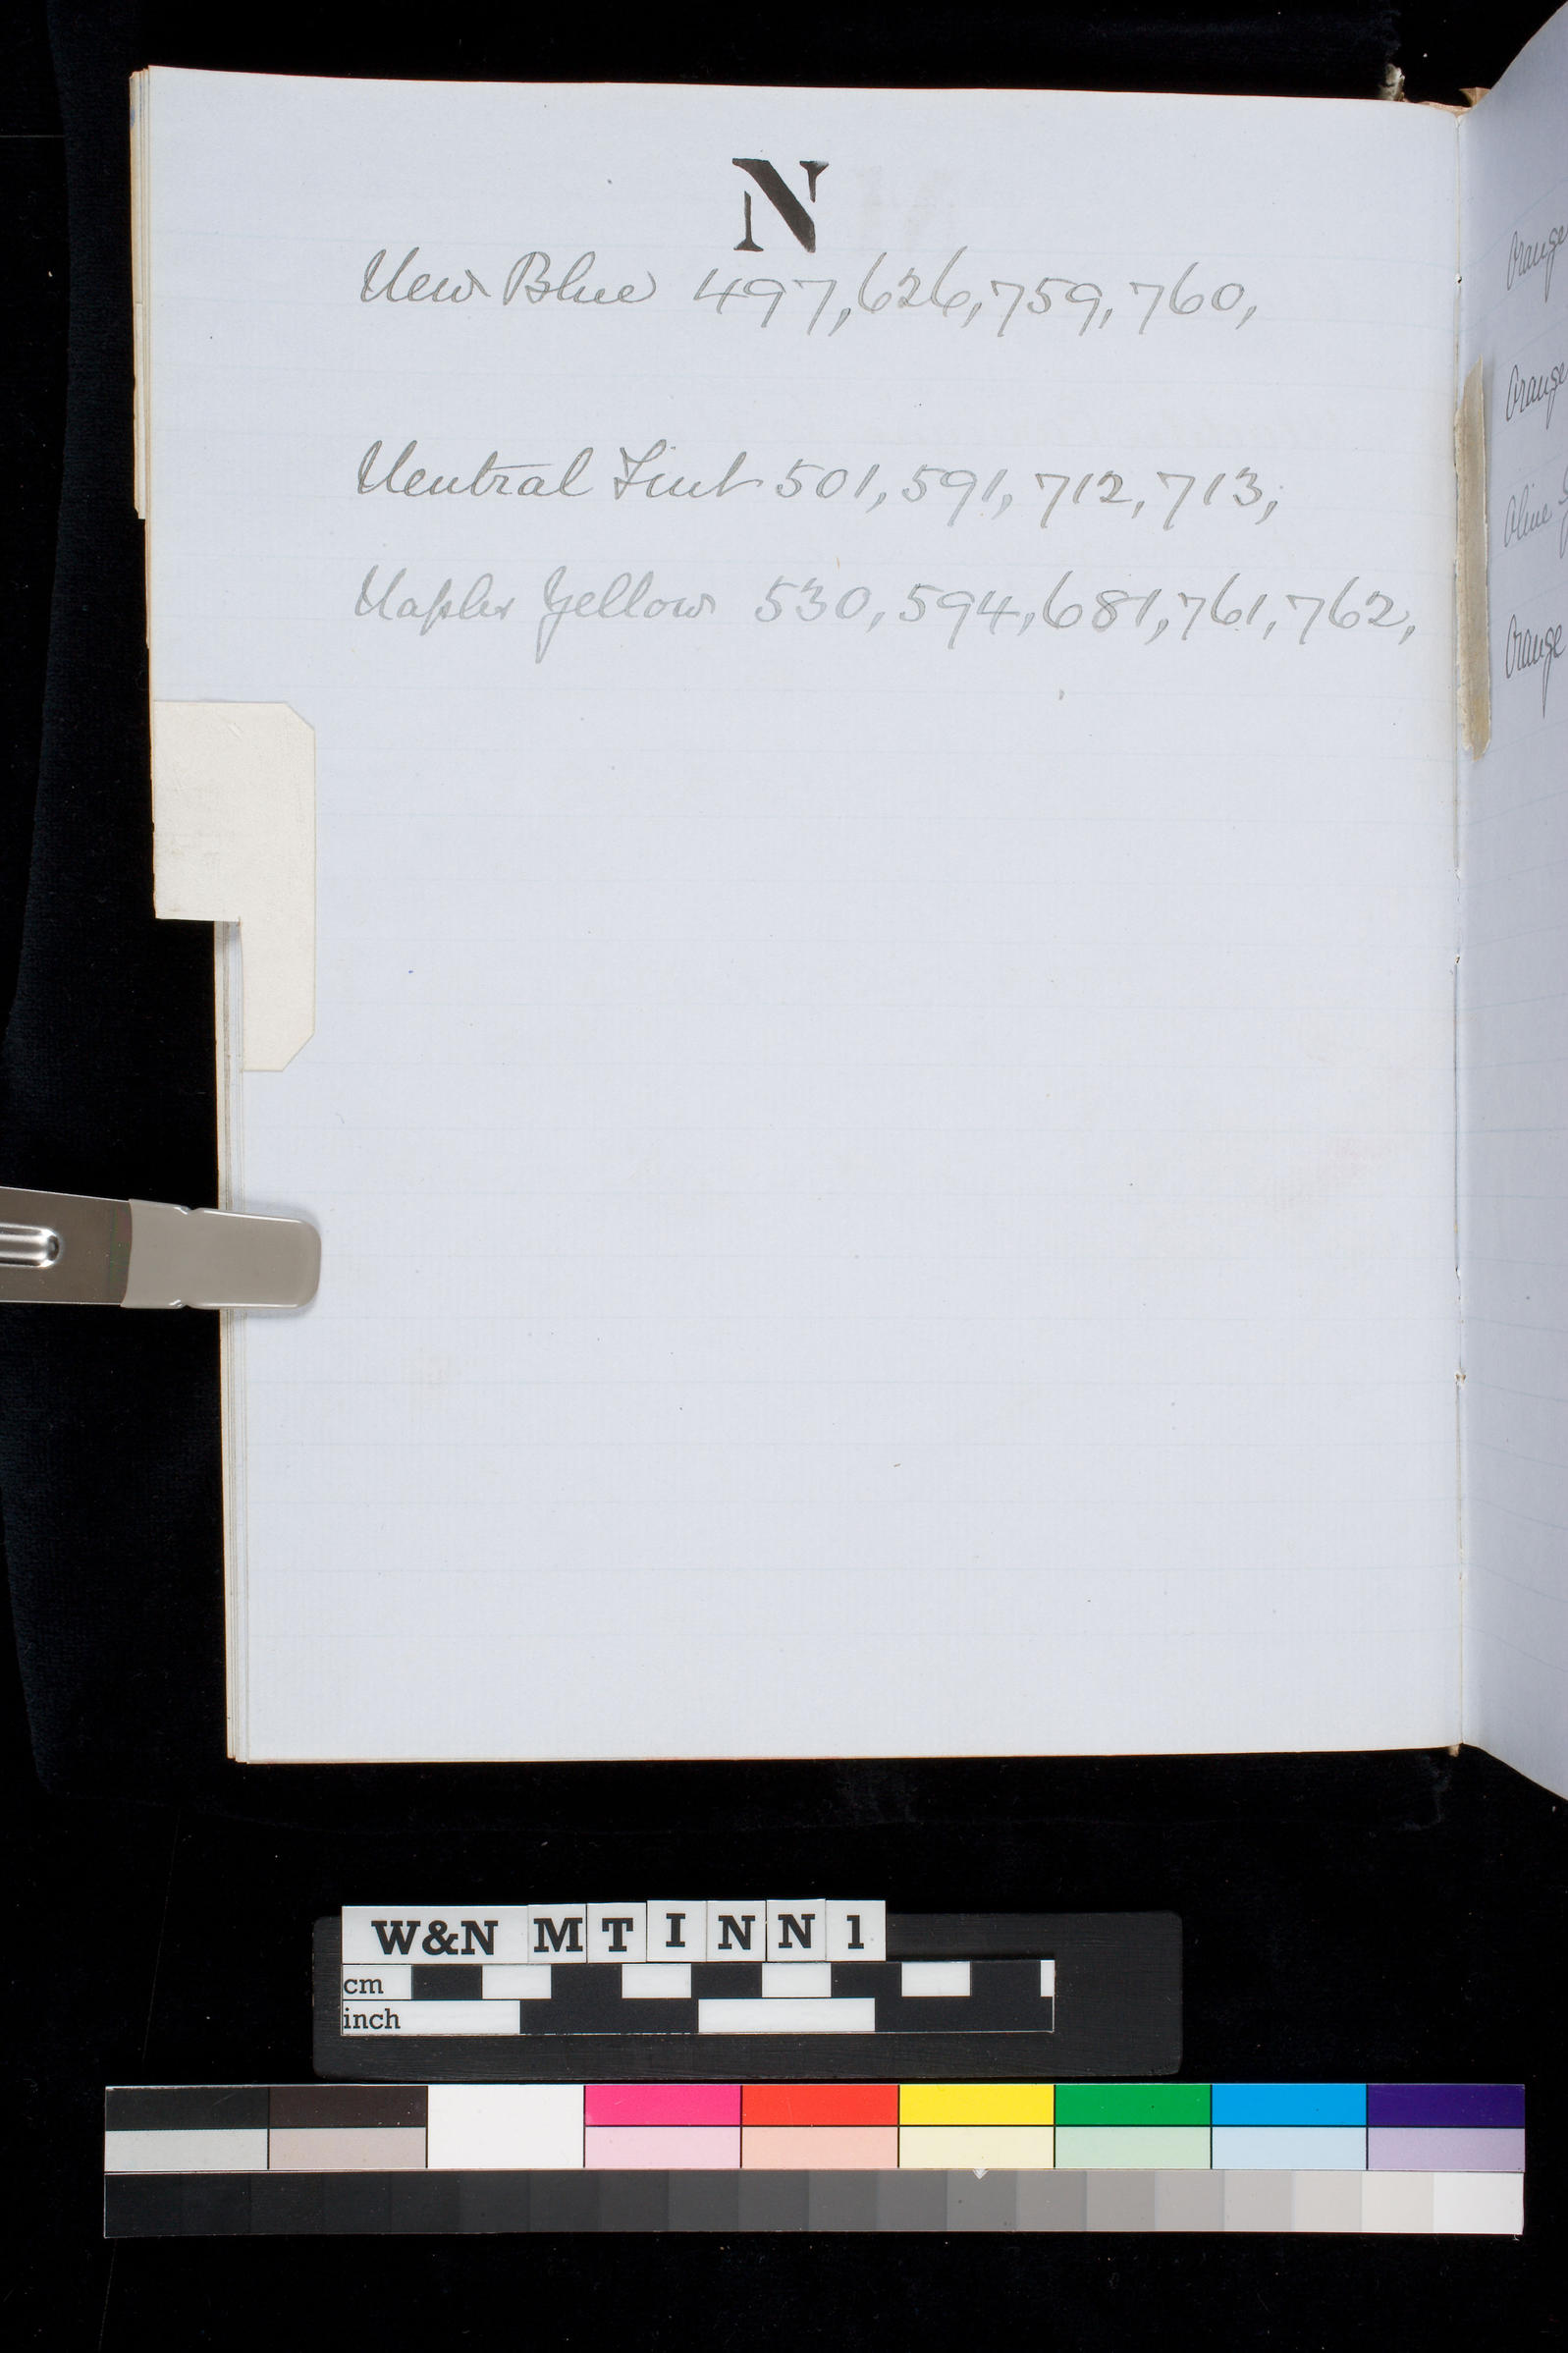 N
New Blue 497, 626, 759, 760,
Neutral Tint 501, 591, 712, 713,
Naples Yellow 530, 594, 681, 761, 762,
Orange
Orange
Olive
Orange
W&N M T I N N 1
cm
inch